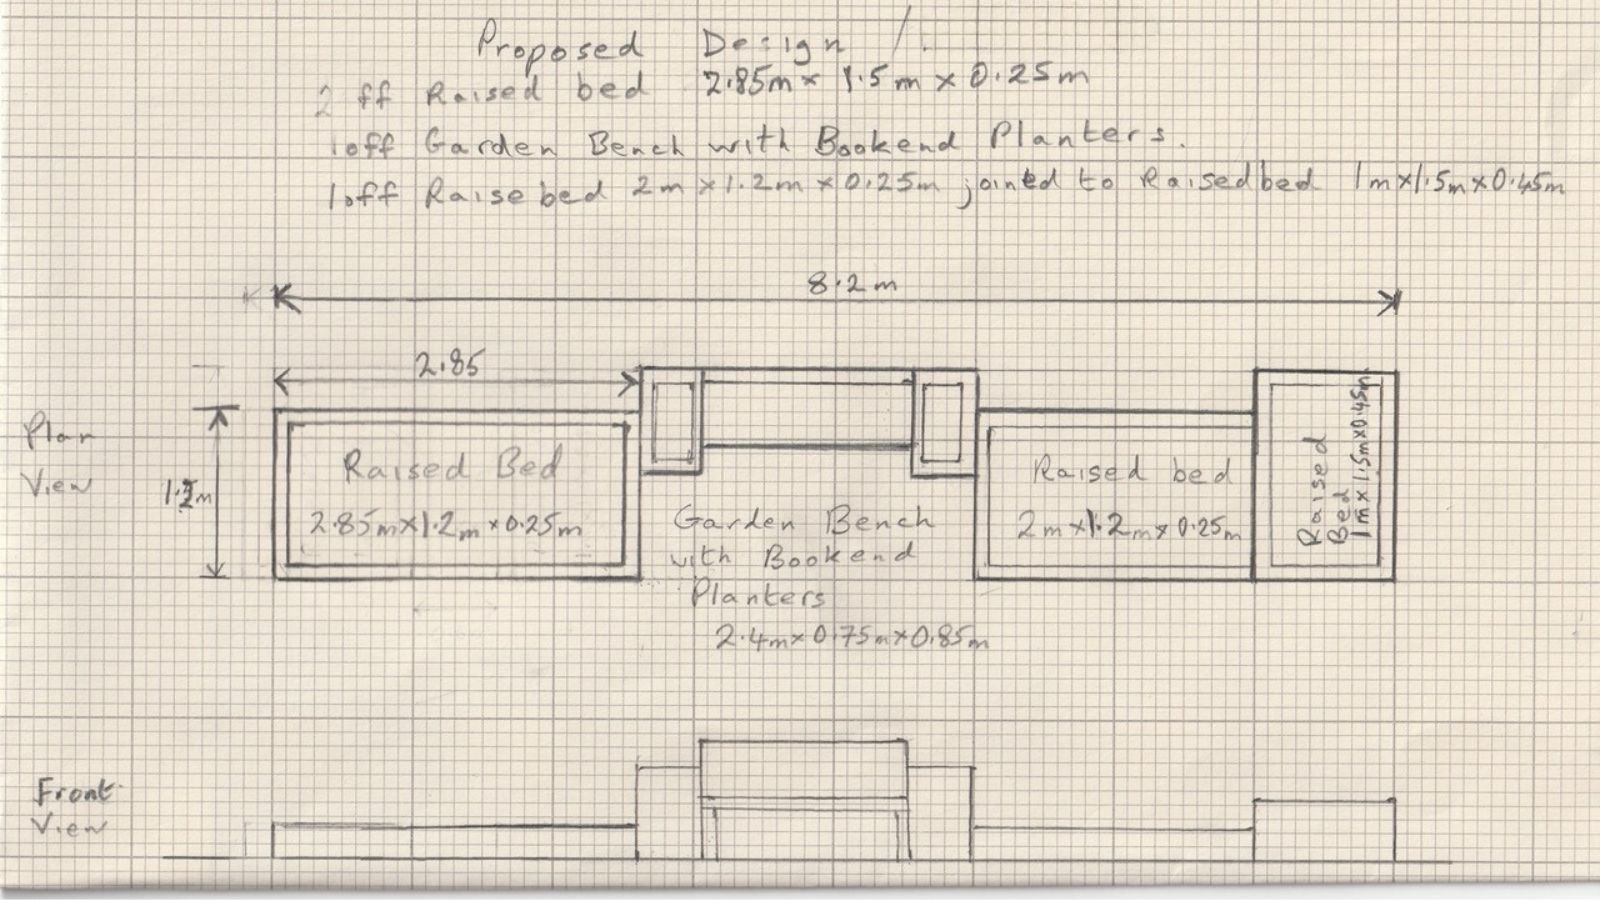 Proposed Design
2 ff Raised bed 2.85m x 1.5m x 0.25m
1off Garden Bench with Bookend Planters.
1off Raise bed 2m x 1.2m x 0.25m joined to Raised bed 1m x 1.5m x 0.45m
8.2m
2.85
Plan
View
Raised Bed
2.85m x 1.2m x 0.25m
Garden Bench
with Bookend
Planters
2.4m x 0.75m x 0.85m
Raised bed
2m x 1.2m x 0.25m
Raised
Bed
1m x 1.5m x 0.45m
Front
View